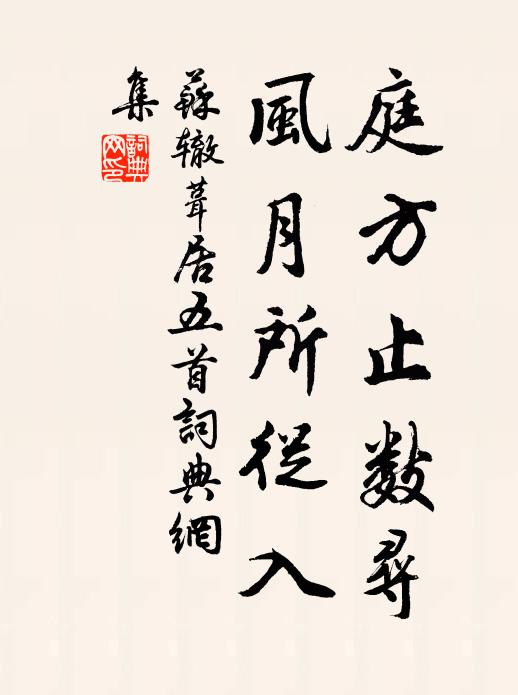 庭方止數尋
風月所從入
蘇轍葺居五首詞典網
集
詞典
網印